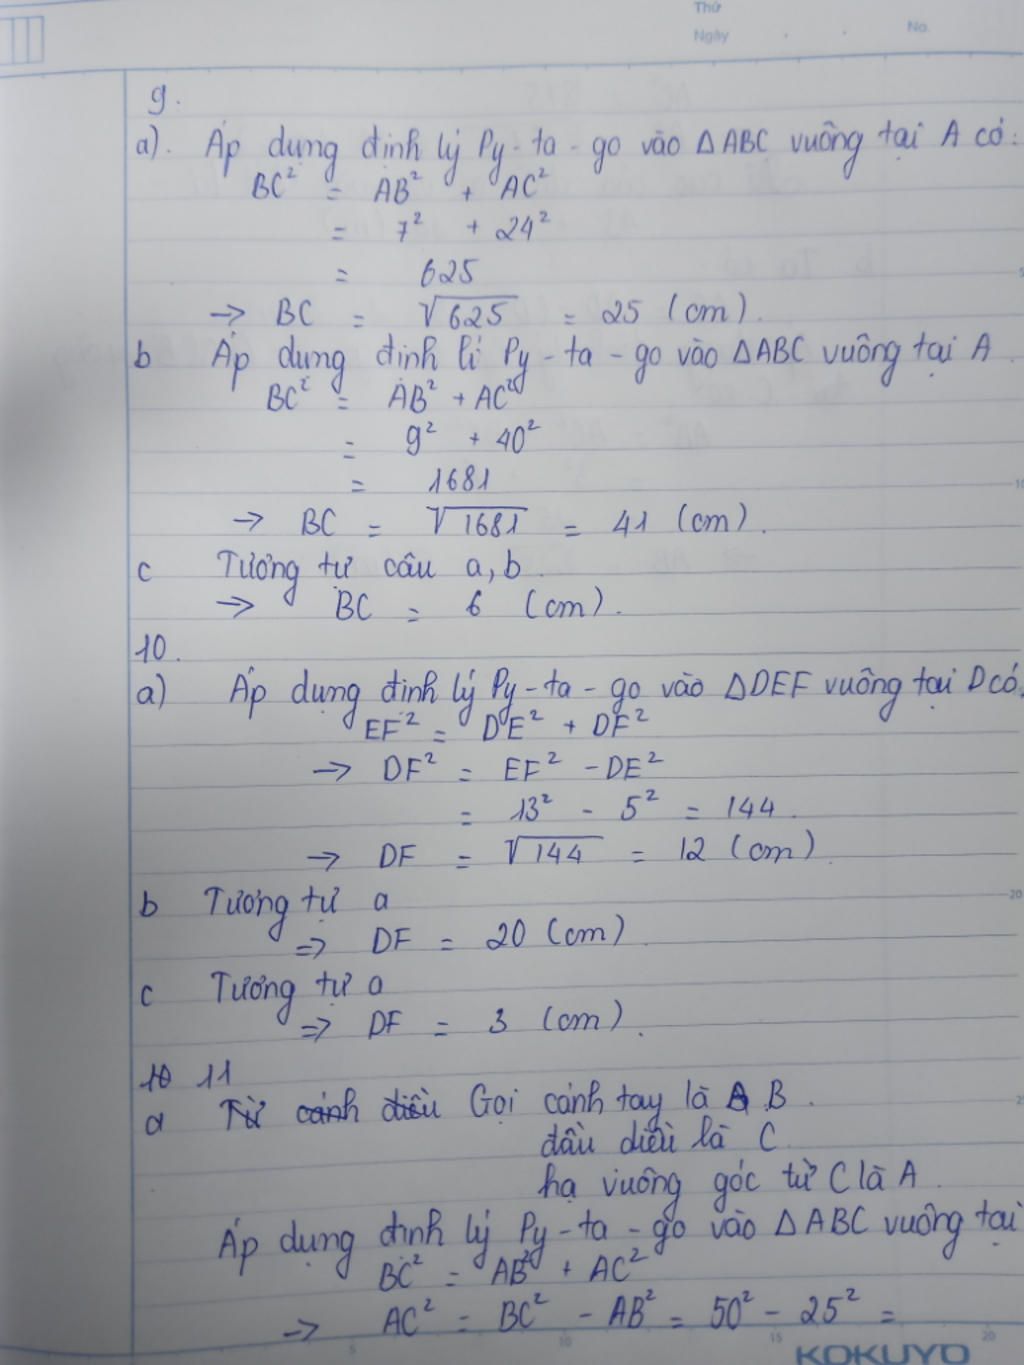 Thứ
Ngày . . No.
9.
a). Áp dụng định lý Py-ta-go vào ΔABC vuông tại A có:
BC² = AB² + AC²
= 7² + 24²
= 625
→ BC = √625 = 25 (cm).
b Áp dụng định lí Py-ta-go vào ΔABC vuông tại A.
BC² = AB² + AC²
= 9² + 40²
= 1681
→ BC = √1681 = 41 (cm).
c Tương tự câu a, b.
→ BC = 6 (cm).
10.
a) Áp dụng định lý Py-ta-go vào ΔDEF vuông tại D có.
EF² = DE² + DF²
→ DF² = EF² - DE²
= 13² - 5² = 144.
→ DF = √144 = 12 (cm).
b Tương tự a
⇒ DF = 20 (cm).
c Tương tự a
⇒ DF = 3 (cm).
10 11
a Từ cánh diều Gọi cánh tay là B.
đầu diều là C.
hạ vuông góc từ C là A.
Áp dụng định lý Py-ta-go vào ΔABC vuông tại
BC² = AB² + AC²
→ AC² = BC² - AB² = 50² - 25² =
5 10 15 20
KOKUYO